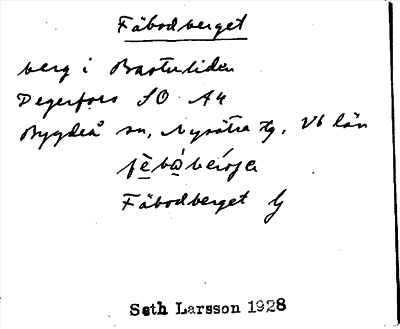 Fäbodberget
berg i Basturliden
Degerfors SO A4
Bygdeå sn, Nysätra tg, Vb län
Fäbodberget G
Seth Larsson 1928